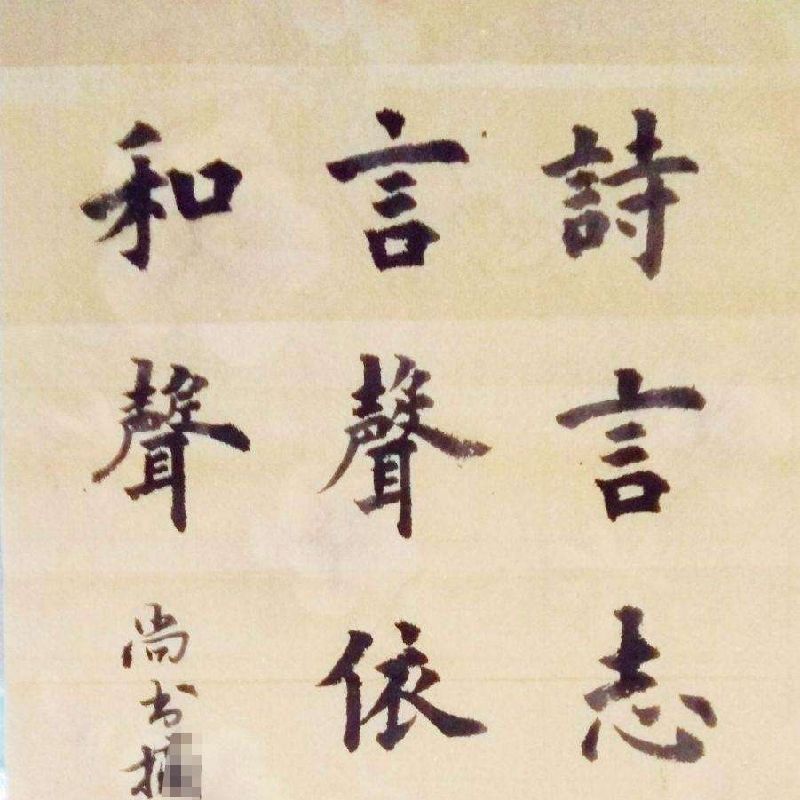 詩言志
言聲依
和聲
尚书